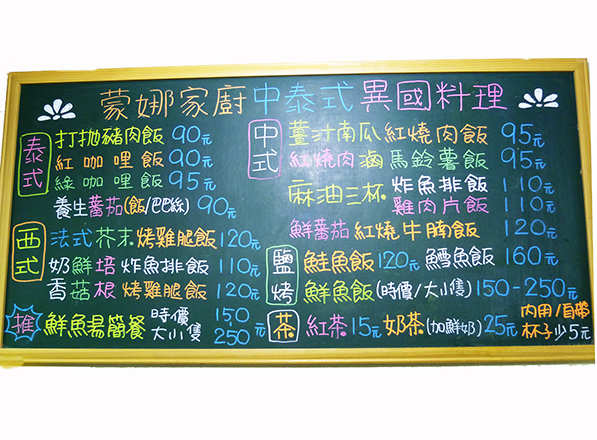 蒙娜家廚中泰式異國料理
泰式
打拋豬肉飯 90元
紅咖哩飯 90元
綠咖哩飯 95元
養生蕃茄(飯/巴巴絲) 90元
西式
法式芥末烤雞腿飯 120元
奶鮮培炸魚排飯 110元
香菇根烤雞腿飯 120元
推
鮮魚湯簡餐 時價 150
大小隻 250元
中式
薑汁南瓜紅燒肉飯 95元
紅燒肉滷馬鈴薯飯 95元
麻油三杯 炸魚排飯 110元
雞肉片飯 110元
鮮蕃茄紅燒牛腩飯 120元
鹽烤
鮭魚飯 120元 鱈魚飯 160元
鮮魚飯(時價/大小隻) 150-250元
茶
紅茶 15元 奶茶(加鮮奶) 25元 內用/自帶
杯子少5元